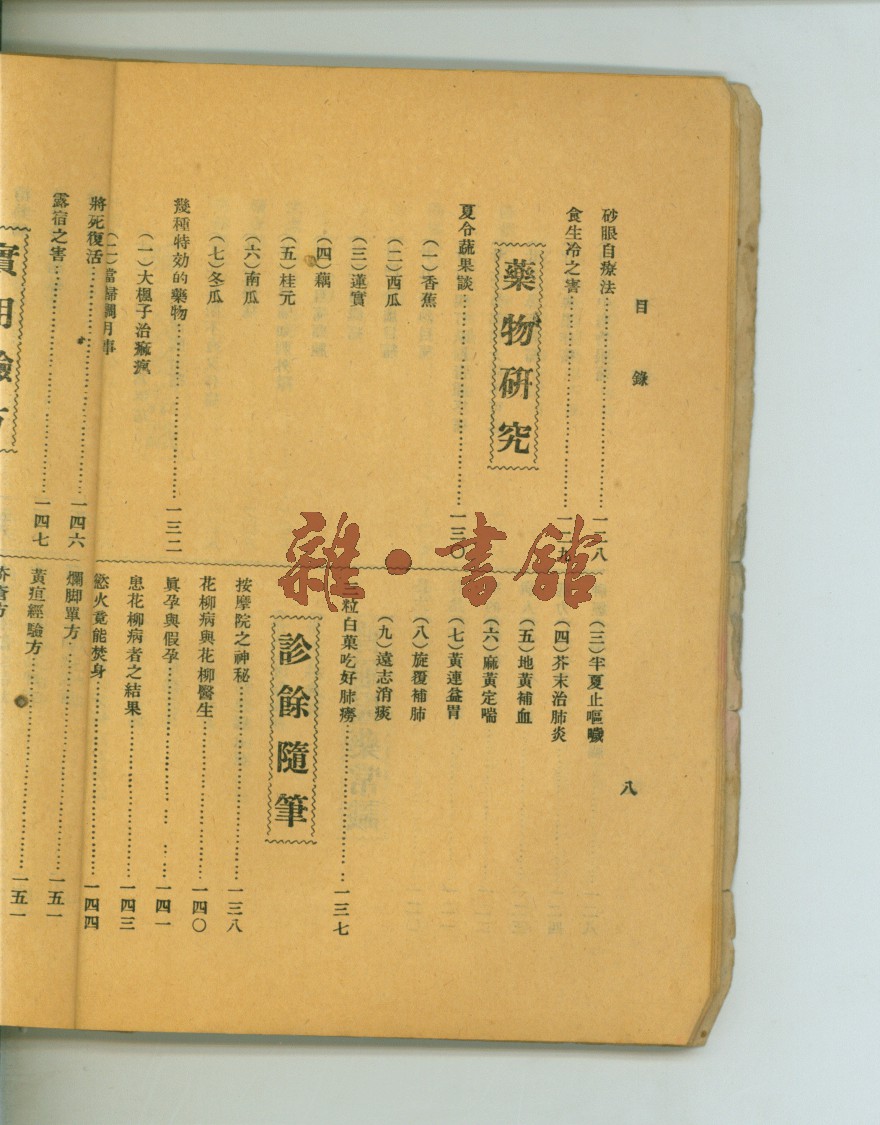 目錄
砂眼自療法……一二八
食生冷之害……一二九
藥物研究
夏令蔬果談……一三〇
（一）香蕉
（二）西瓜
（三）蓮實
（四）藕
（五）桂元
（六）南瓜
（七）冬瓜
幾種特効的藥物……一三二
（一）大楓子治痲瘋
（二）當歸調月事
（三）半夏止嘔噦
（四）芥末治肺炎
（五）地黃補血
（六）麻黃定喘
（七）黃連益胃
（八）旋覆補肺
（九）遠志消痰
粒白菓吃好肺癆……一三七
診餘隨筆
按摩院之神秘……一三八
花柳病與花柳醫生……一四〇
眞孕與假孕……一四一
患花柳病者之結果……一四三
慾火竟能焚身……一四四
八
將死復活……一四六
露宿之害……一四七
實用驗方
爛脚單方……一五一
黃疸經驗方……一五一
雜·書館